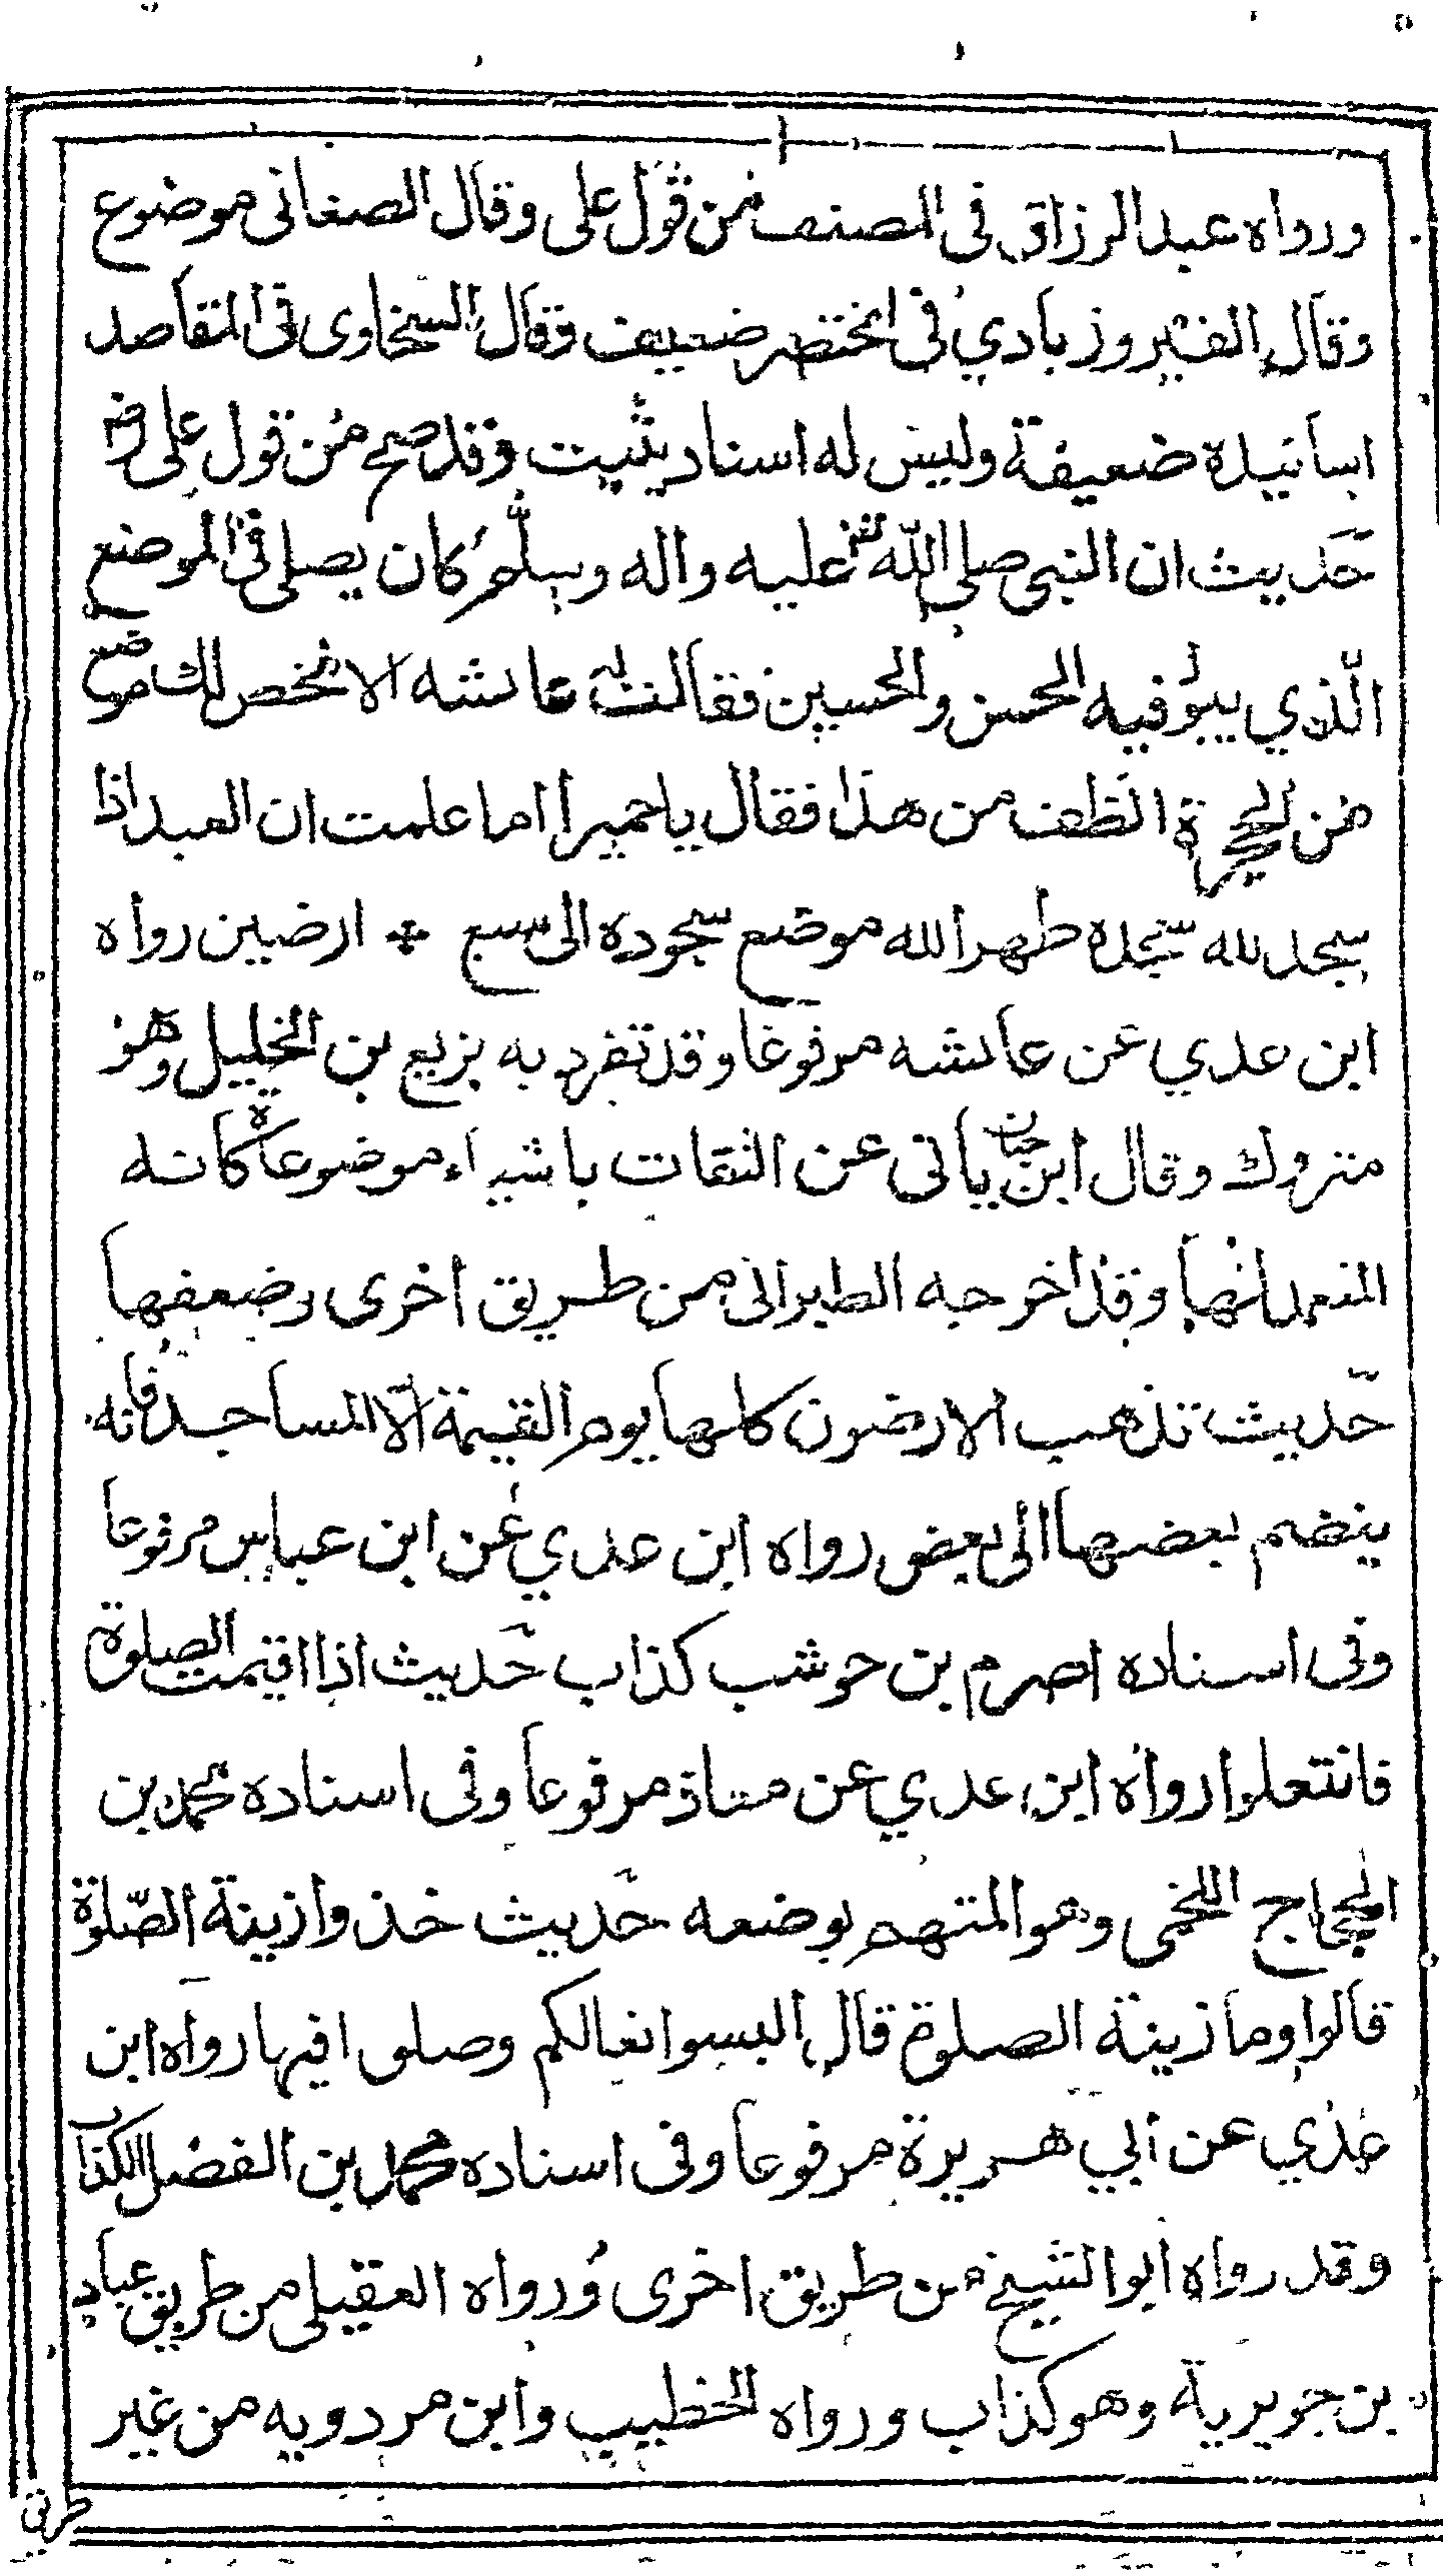 ورواه عبد الرزاق فى المصنف من قول على وقال الصغانى موضوع
وقال الفيروزبادي فى المختصر ضعيف وقال السخاوى فى المقاصد
اسانيده ضعيفة وليس له اسناد يثبت وقد صح من قول على رض
حديث ان النبى صلى الله عليه واله وسلم كان يصلى فى الموضع
الذي يبول فيه الحسن والحسين فقالت عائشه الا نخص لك موضع
من الحجرة انظف من هذا فقال يا حميرا اما علمت ان العبد اذا
سجد لله سجدة طهر الله موضع سجوده الى سبع ارضين رواه
ابن عدي عن عائشه مرفوعا وقد تفرد به بزيع بن الخليل وهو
متروك وقال ابن حبان ياتى عن الثقات باشياء موضوعة كانه
المتعمد لها وقد اخرجه الطبرانى من طريق اخرى وضعفها
حديث تذهب الارضون كلها يوم القيمة الا المساجد فانه
ينضم بعضها الى بعض رواه ابن عدي عن ابن عباس مرفوعا
وفى اسناده اصرم بن حوشب كذاب حديث اذا اقيمت الصلوة
فانتعلوا رواه ابن عدي عن معاذ مرفوعا وفى اسناده محمد بن
الحجاج اللخمى وهو المتهم بوضعه حديث خذوا زينة الصلوة
قالوا وما زينة الصلوة قال البسوا نعالكم وصلوا فيها رواه ابن
عدي عن ابي هريرة مرفوعا وفى اسناده محمد بن الفضل الكذاب
وقد رواه ابو الشيخ من طريق اخرى ورواه العقيلى من طريق عباد
بن جويرية وهو كذاب ورواه الخطيب وابن مردويه من غير
طريق